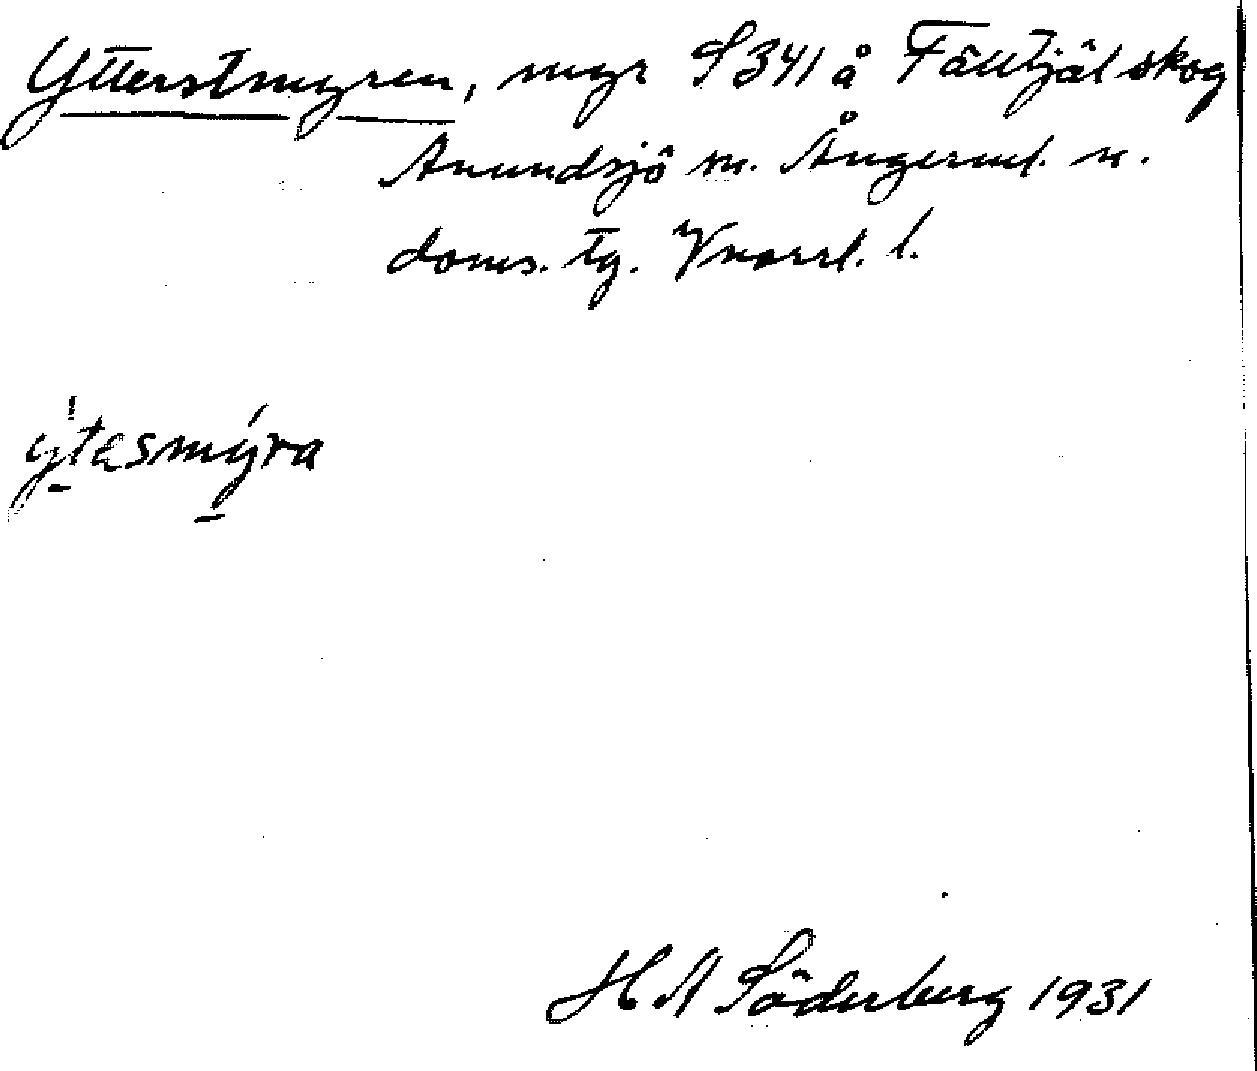 Ytterstmyren, myr S 341 å Fälltjäl skog
Anundsjö sn. Ångerml. n.
doms. tg. Vnorrl. l.
ýtesmýra
H A Söderberg 1931